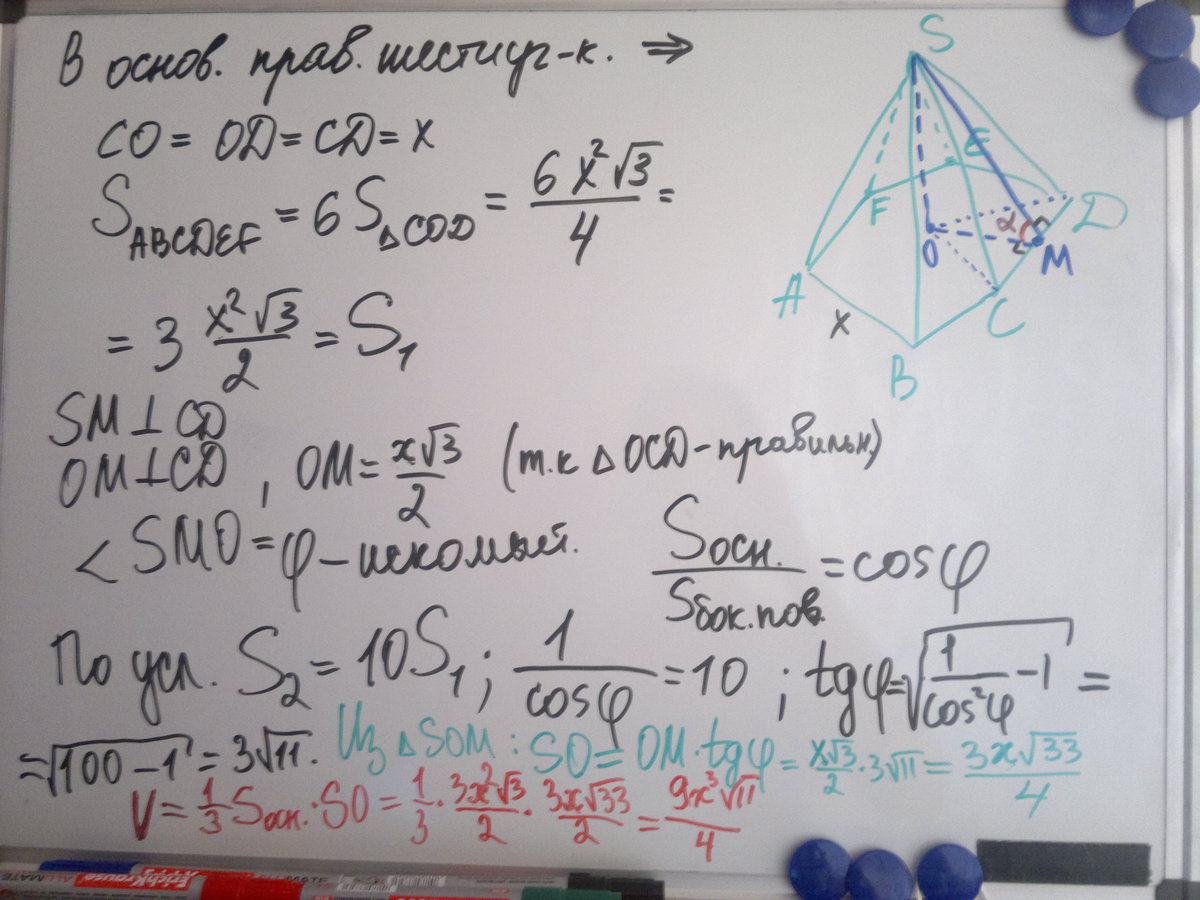 В основ. прав. шестиуг-к. ⇒
CO = OD = CD = x
S_ABCDEF = 6 S_△COD = 6x²√3/4 =
= 3 x²√3/2 = S₁
SM ⊥ CD
OM ⊥ CD, OM = x√3/2 (т.к △OCD - правильн.)
< SMO = φ - искомый. Sосн./Sбок.пов. = cosφ
По усл. S₂ = 10S₁; 1/cosφ = 10; tgφ = √(1/cos²φ - 1) =
= √(100 - 1) = 3√11. Из △SOM: SO = OM·tgφ = x√3/2 · 3√11 = 3x√33/4
V = 1/3 Sосн.·SO = 1/3 · 3x²√3/2 · 3x√33/2 = 9x³√11/4
S
E
F
D
α
O
M
A
C
x
B
ErichKrause